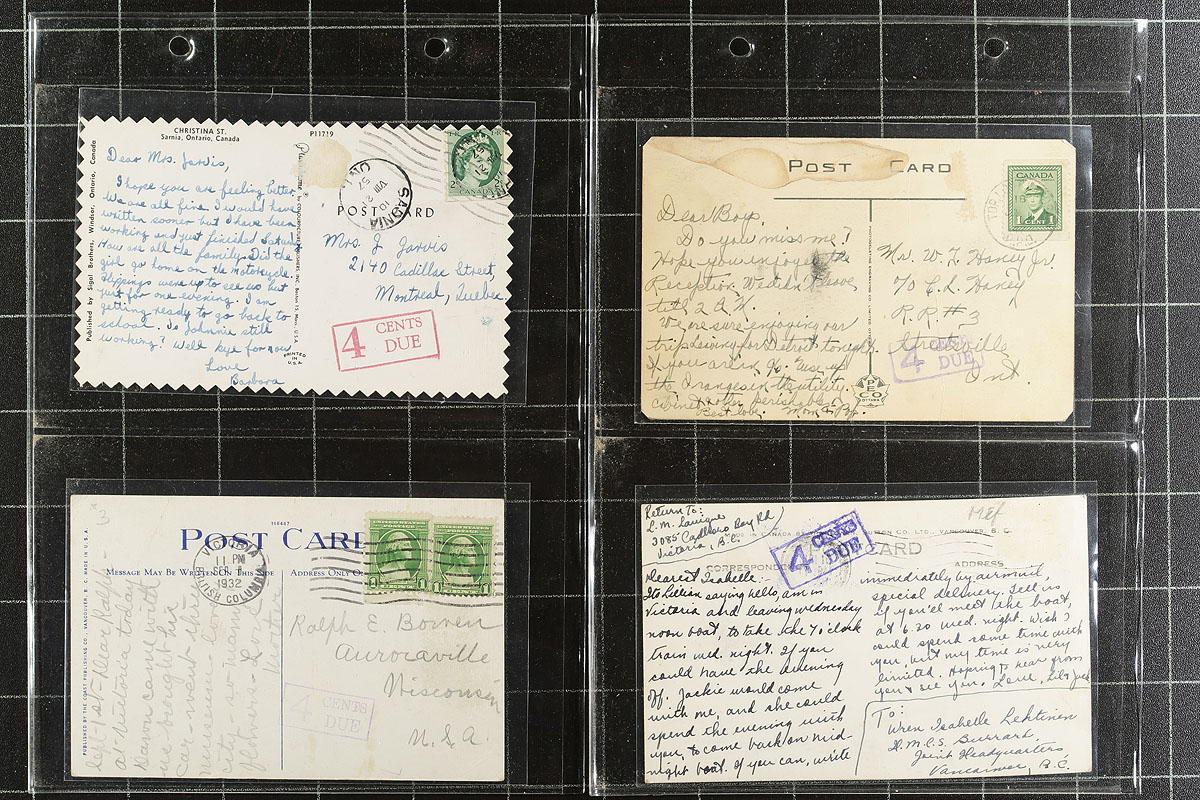 CHRISTINA ST.
Sarnia, Ontario, Canada
P11719
Published by Sigal Brothers, Windsor, Ontario, Canada
Dear Mrs. Jarvis,
I hope you are feeling better.
We are all fine. I would have
written sooner but I have been
working and just finished
How are all the family. Did the
girl go home on the motorcycle.
were up to see us but
just for one evening. I am
getting ready to go back to
school. Is Johnnie still
working? Well bye for now
Love
Barbara
PRINTED
IN
U.S.A.
POST CARD
SARNIA
ONT
CANADA
Mrs. J Jarvis
2140 Cadillac Street,
Montreal, Quebec.
4 CENTS
DUE
POST CARD
CANADA
1 CENT 1
Dear Boys,
Do you miss me?
Hope you enjoyed the
Reception. We didn't leave
till 2 A.M.
We are sure enjoying our
trip leaving for Detroit tonight.
If you are in
the Oranges in the utility
cabinet & other perishables
Best love. Mom &
Mr. W. L. Haney Jr.
C. L. Haney
R R # 3
Ont.
4 CENTS
DUE
PECO
OTTAWA
118487
POST CARD
MESSAGE MAY BE WRITTEN ON THIS SIDE
ADDRESS ONLY
PUBLISHED BY THE COAST PUBLISHING CO., VANCOUVER, B. C. MADE IN U. S. A.
VICTORIA
11 PM
SEP 1
1932
BRITISH COLUMBIA
Sept 1st- Dear Ralph-
at Victoria today
Dawn came with
us brought his
car-
Love
Mother
Ralph E. Bowen
Auroraville
Wisconsin
U.S.A.
4 CENTS
DUE
Return To:
L. M.
3085 Cadboro Bay Rd
Victoria, B.C.
MADE IN CANADA
CO. LTD., VANCOUVER, B. C.
CARD
CORRESPONDENCE
ADDRESS
4 CENTS
DUE
Dearest Isabelle:-
Its Lillian saying hello, am in
Victoria and leaving wednesday
noon boat, to take the 7 o'clock
train wed. night. If you
could have the evening
off. Jackie would come
with me, and she could
spend the evening with
you, to come back on mid-
night boat. If you can, write
immediately by airmail,
special delivery. Tell us
if you'll meet the boat,
at 6.20 wed. night. Wish I
could spend some time with
you, but my time is very
limited. Hoping to hear from
you & see you. Love, Lil & Jack
To:
Wren Isabelle Lehtinen
H.M.C.S. Burrard,
Joint Headquarters,
Vancouver, B.C.